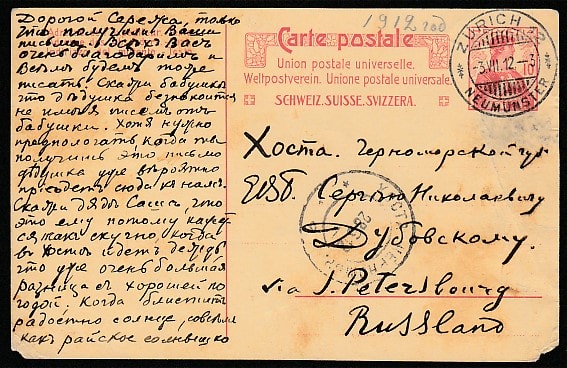 Дорогой Сережа, только
что получили Ваши
письма. Всѣхъ Васъ
очень благодаримъ и
Всѣмъ будемъ тоже
писать. Скажи бабушкѣ
что дѣдушка безпокоится
не имѣя писемъ отъ
бабушки. Хотя нужно
предполагать когда ты
получишь это письмо
дѣдушка уже вѣроятно
приѣдетъ сюда къ намъ.
Скажи дядѣ Сашѣ что
это ему потому кажет-
ся какъ скучно, когда
въ Хостѣ идетъ дождь
что уже очень большая
разница съ хорошей по-
годой. Когда блеститъ
радостно солнце, совсѣмъ
какъ райское солнышко
1912 год
Carte postale
Union postale universelle.
Weltpostverein. Unione postale universale.
SCHWEIZ. SUISSE. SVIZZERA.
ZÜRICH 12
-3.VII.12.-3
NEUMÜNSTER
10
Хоста. Черноморской губ
ЕВ. Сергѣю Николаевичу
Дубовскому.
via S. Petersbourg
Russland